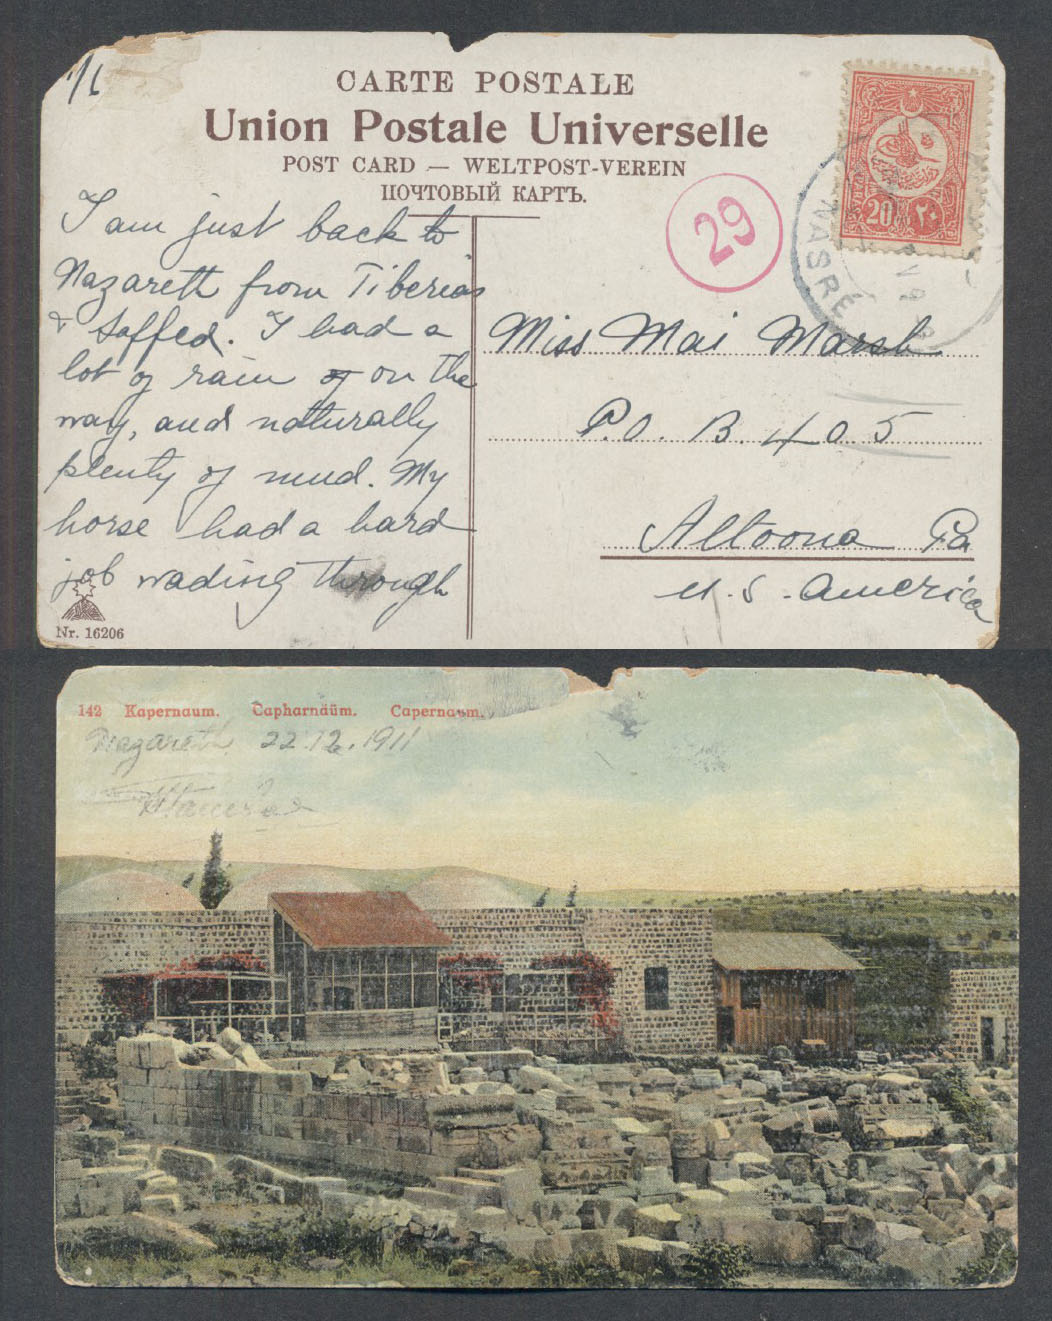 1/2
CARTE POSTALE
Union Postale Universelle
POST CARD — WELTPOST-VEREIN
ПОЧТОВЫЙ КАРТЪ.
I am just back to
Nazareth from Tiberias
& Saffed. I had a
lot of rain of on the
way, and naturally
plenty of mud. My
horse had a hard
job wading through
Nr. 16206
29
20 ٢٠
NASRÉ
Miss Mai Marsh
P.O. B. 405
Altoona Pa
U.S. America
142 Kapernaum. Capharnäüm. Capernaum.
Nazareth 22.12.1911